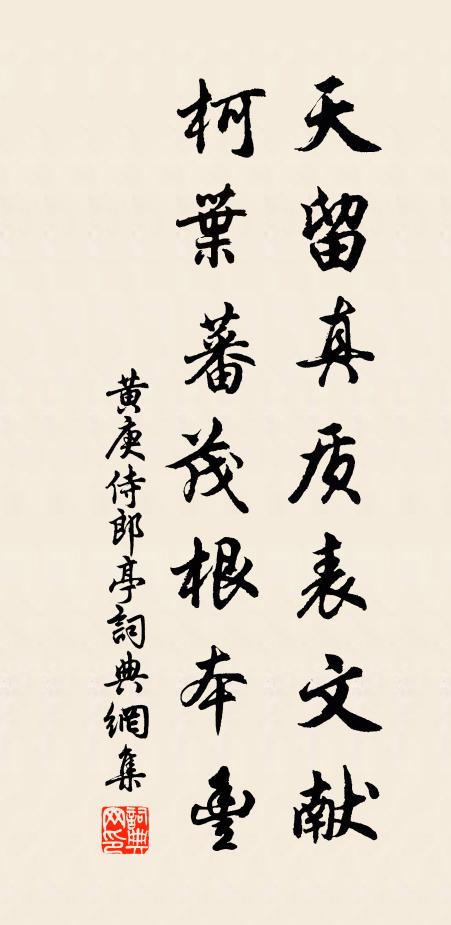 天留真质表文献
柯葉蕃茂根本豐
黄庚侍郎亭詞典網集
詞典网印